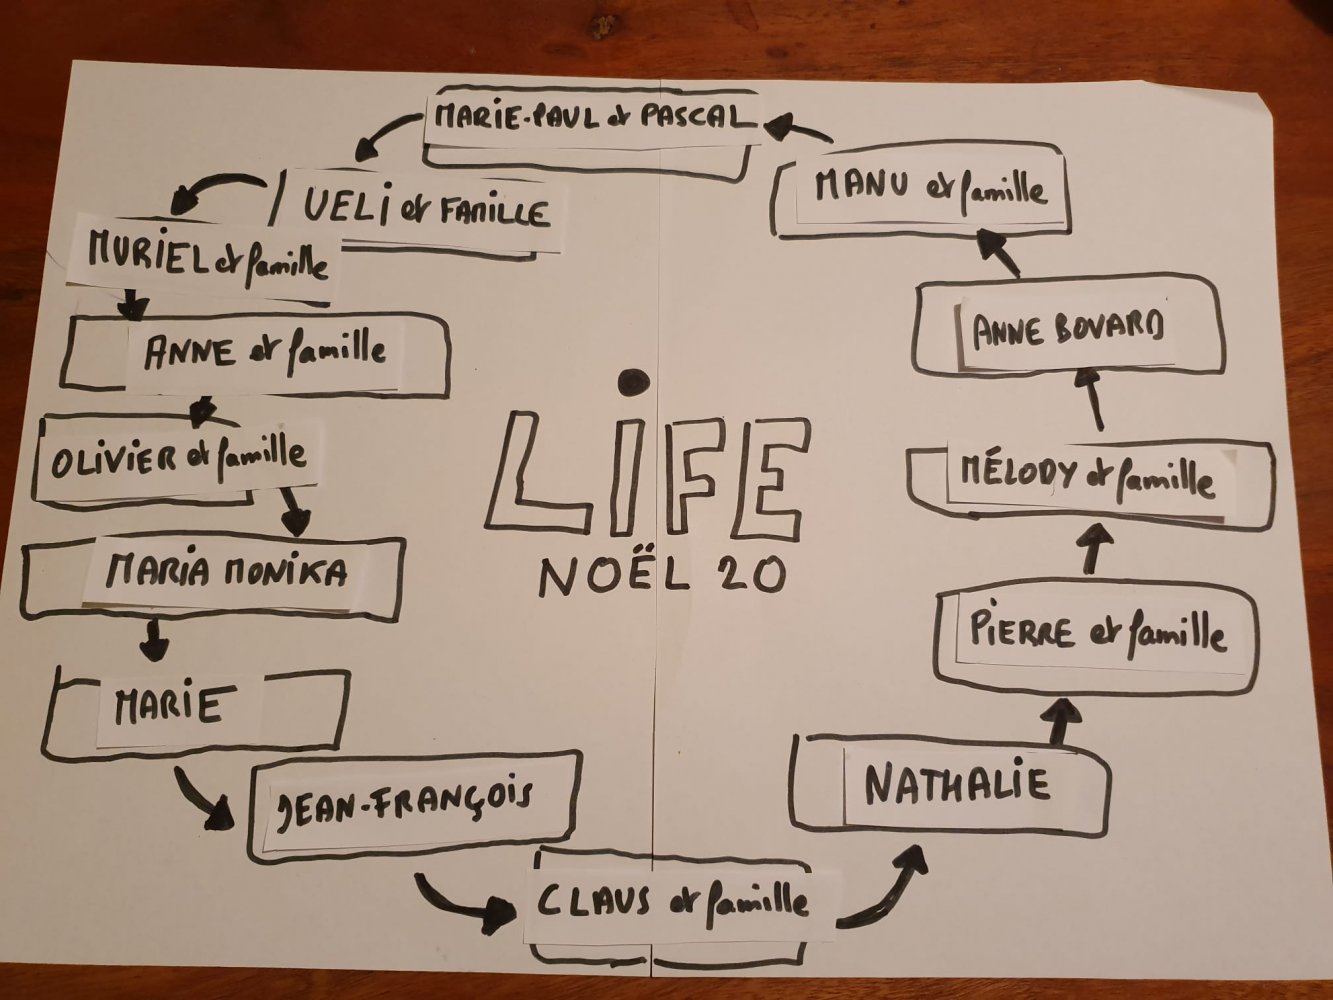 MARIE-PAUL et PASCAL
MANU et famille
UELI et FAMILLE
MURIEL et famille
ANNE BOVARD
ANNE et famille
MÉLODY et famille
OLIVIER et famille
LIFE
NOËL 20
MARIA MONIKA
PIERRE et famille
MARIE
NATHALIE
JEAN-FRANÇOIS
CLAUS et famille